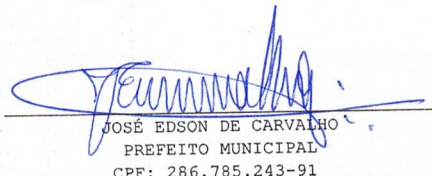 JOSÉ EDSON DE CARVALHO
PREFEITO MUNICIPAL
CPF: 286.785.243-91